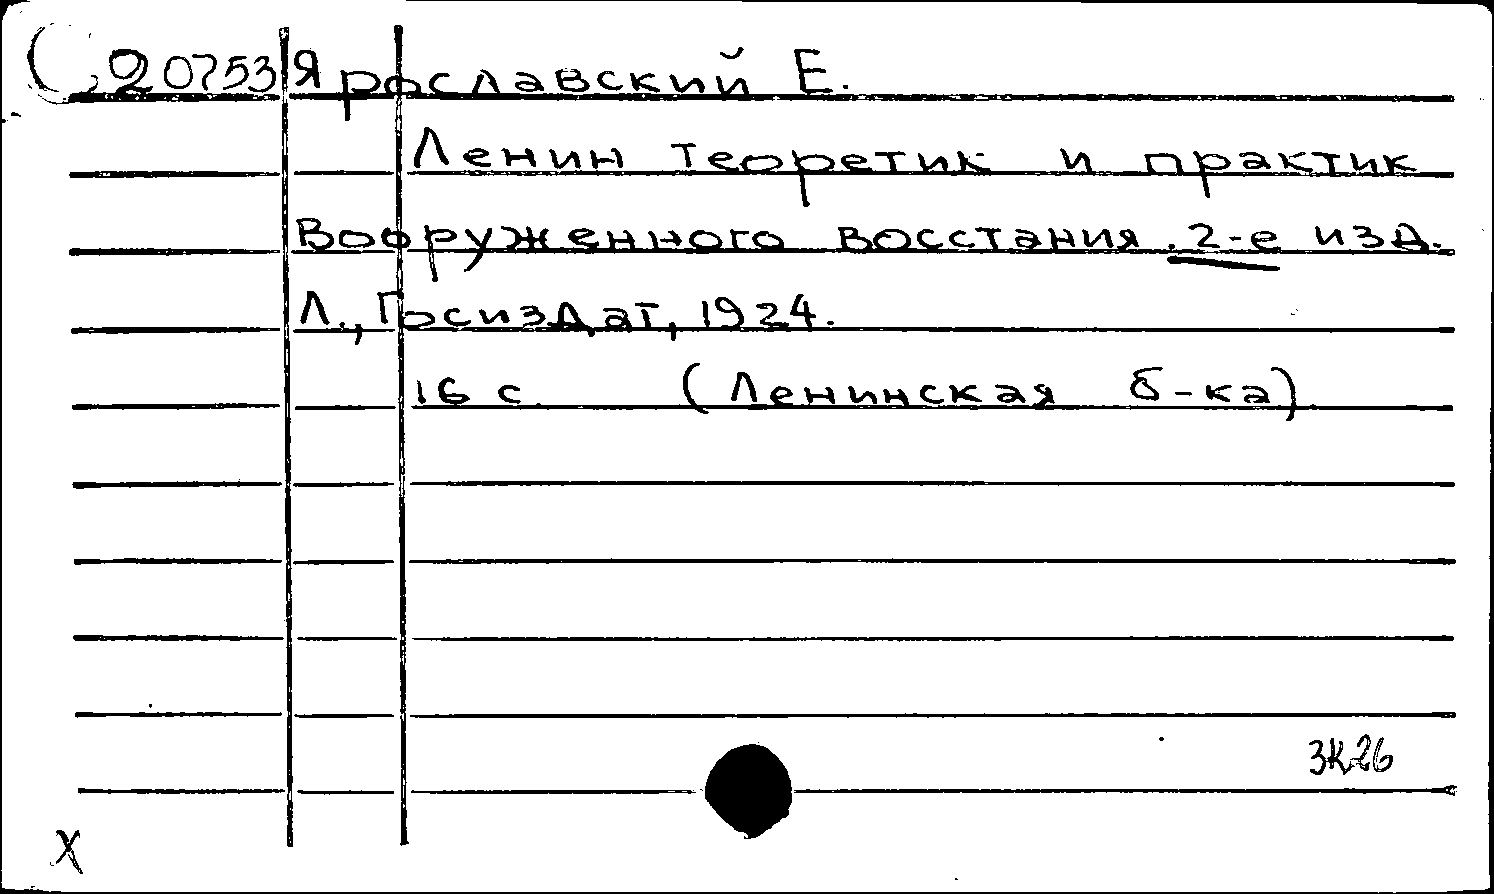 20753 Ярославский Е.
Ленин теоретик и практик
вооруженного восстания. 2-е изд.
Л., Госиздат, 1924.
16 с. (Ленинская б-ка)
3К26
X